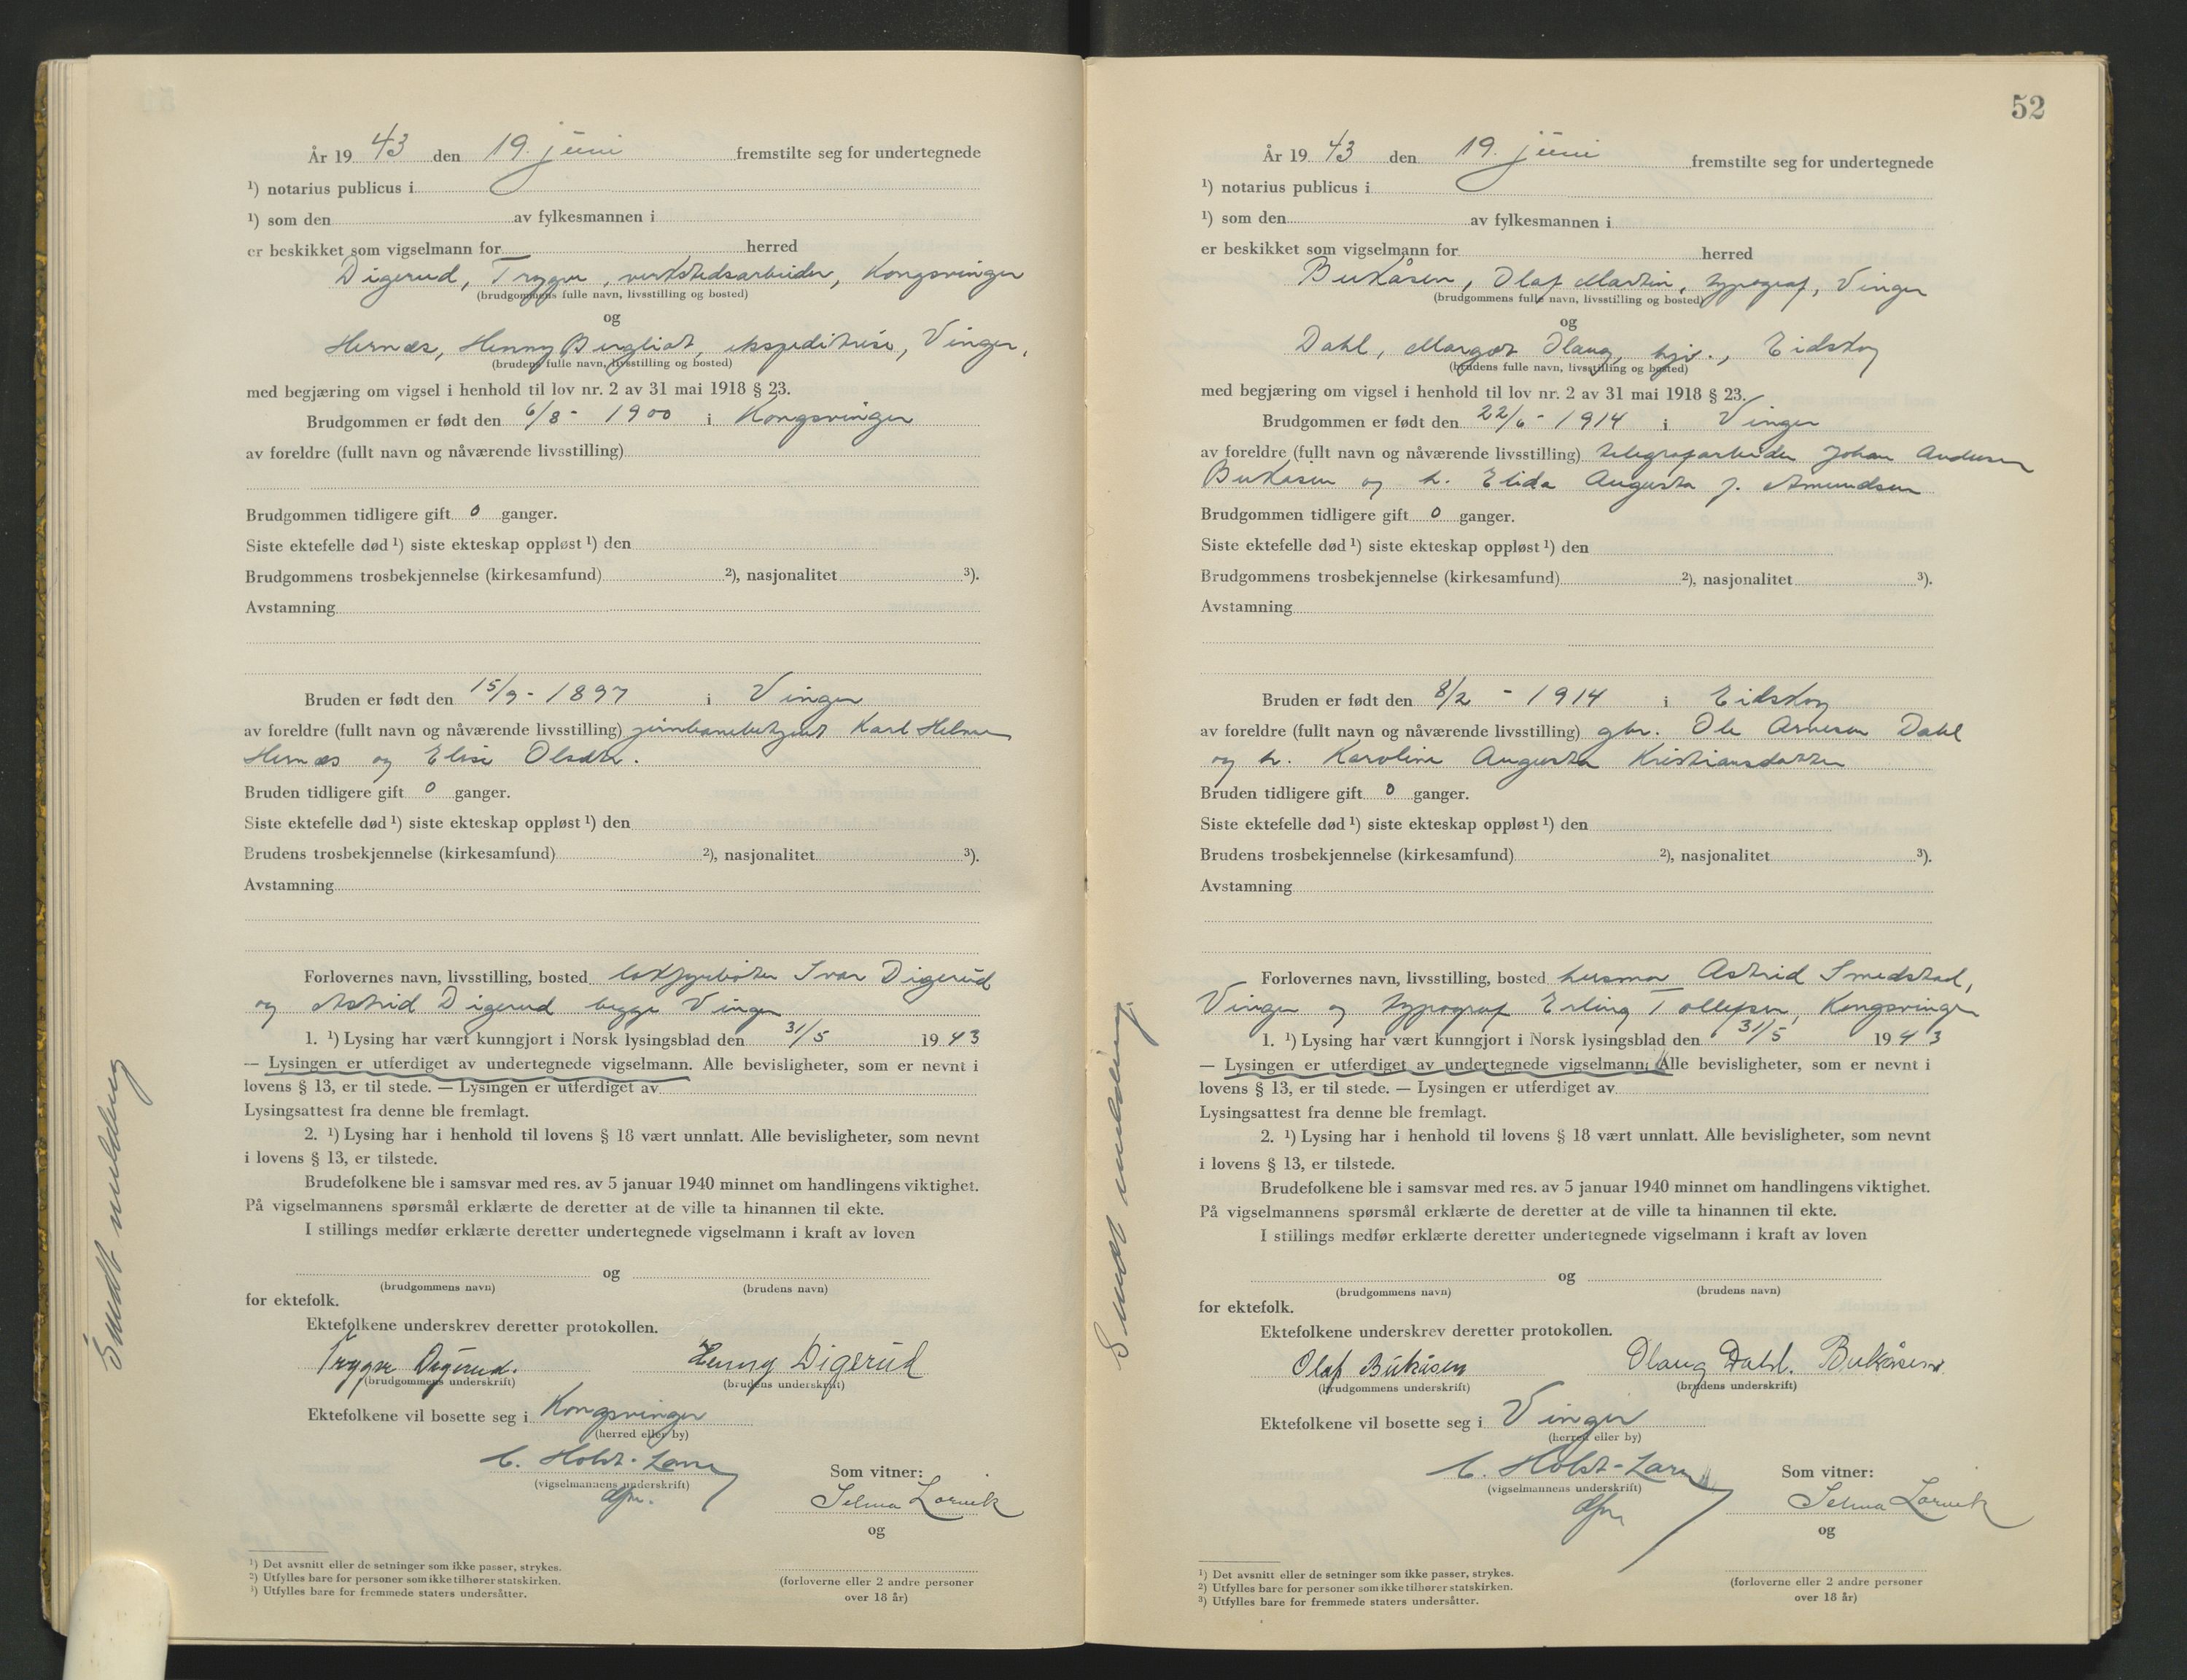 År 19 43 den 19. juni fremstilte seg for undertegnede
¹) notarius publicus i
¹) som den av fylkesmannen i
er beskikket som vigselmann for herred
Digerud, Trygve, verkstedsarbeider, Kongsvinger
(brudgommens fulle navn, livsstilling og bosted)
og
Hernæs, Henny Bergliot, ekspeditrise, Vinger,
(brudens fulle navn, livsstilling og bosted)
med begjæring om vigsel i henhold til lov nr. 2 av 31 mai 1918 § 23.
Brudgommen er født den 6/8 - 1900 i Kongsvinger
av foreldre (fullt navn og nåværende livsstilling)
Brudgommen tidligere gift 0 ganger.
Siste ektefelle død ¹) siste ekteskap oppløst ¹) den
Brudgommens trosbekjennelse (kirkesamfund) ²), nasjonalitet ³).
Avstamning
Bruden er født den 15/9 - 1897 i Vinger
av foreldre (fullt navn og nåværende livsstilling) jernbanebetjent Karl Helmer
Hernæs og Elise Olsdtr.
Bruden tidligere gift 0 ganger.
Siste ektefelle død ¹) siste ekteskap oppløst ¹) den
Brudens trosbekjennelse (kirkesamfund) ²), nasjonalitet ³).
Avstamning
Forlovernes navn, livsstilling, bosted lokfyrbøter Ivar Digerud
og Astrid Digerud begge Vinger
1. ¹) Lysing har vært kunngjort i Norsk lysingsblad den 31/5 19 43
— Lysingen er utferdiget av undertegnede vigselmann. Alle bevisligheter, som er nevnt i
lovens § 13, er til stede. — Lysingen er utferdiget av
Lysingsattest fra denne ble fremlagt.
2. ¹) Lysing har i henhold til lovens § 18 vært unnlatt. Alle bevisligheter, som nevnt
i lovens § 13, er tilstede.
Brudefolkene ble i samsvar med res. av 5 januar 1940 minnet om handlingens viktighet.
På vigselmannens spørsmål erklærte de deretter at de ville ta hinannen til ekte.
I stillings medfør erklærte deretter undertegnede vigselmann i kraft av loven
og
(brudgommens navn) (brudens navn)
for ektefolk.
Ektefolkene underskrev deretter protokollen.
Trygve Digerud. Henny Digerud
(brudgommens underskrift) (brudens underskrift)
Ektefolkene vil bosette seg i Kongsvinger
(herred eller by)
C. Holst-Larsen
(vigselmannens underskrift)
dfm.
Som vitner:
Selma Larvik
og
(forloverne eller 2 andre personer
over 18 år)
¹) Det avsnitt eller de setninger som ikke passer, strykes.
²) Utfylles bare for personer som ikke tilhører statskirken.
³) Utfylles bare for fremmede staters undersåtter.
Sendt melding
52
År 19 43 den 19. juni fremstilte seg for undertegnede
¹) notarius publicus i
¹) som den av fylkesmannen i
er beskikket som vigselmann for herred
Bukåsen, Olaf Martin, typograf, Vinger
(brudgommens fulle navn, livsstilling og bosted)
og
Dahl, Margot Olaug, hjv., Eidskog
(brudens fulle navn, livsstilling og bosted)
med begjæring om vigsel i henhold til lov nr. 2 av 31 mai 1918 § 23.
Brudgommen er født den 22/6 - 1914 i Vinger
av foreldre (fullt navn og nåværende livsstilling) telegrafarbeider Johan Andersen
Bukåsen og h. Elida Augusta f. Amundsen
Brudgommen tidligere gift 0 ganger.
Siste ektefelle død ¹) siste ekteskap oppløst ¹) den
Brudgommens trosbekjennelse (kirkesamfund) ²), nasjonalitet ³).
Avstamning
Bruden er født den 8/2 - 1914 i Eidskog
av foreldre (fullt navn og nåværende livsstilling) gbr. Ole Arnesen Dahl
og h. Karoline Augusta Kristiansdatter
Bruden tidligere gift 0 ganger.
Siste ektefelle død ¹) siste ekteskap oppløst ¹) den
Brudens trosbekjennelse (kirkesamfund) ²), nasjonalitet ³).
Avstamning
Forlovernes navn, livsstilling, bosted husmor Astrid Smedstad,
Vinger og typograf Erling Tollefsen, Kongsvinger
1. ¹) Lysing har vært kunngjort i Norsk lysingsblad den 31/5 19 43
— Lysingen er utferdiget av undertegnede vigselmann. Alle bevisligheter, som er nevnt i
lovens § 13, er til stede. — Lysingen er utferdiget av
Lysingsattest fra denne ble fremlagt.
2. ¹) Lysing har i henhold til lovens § 18 vært unnlatt. Alle bevisligheter, som nevnt
i lovens § 13, er tilstede.
Brudefolkene ble i samsvar med res. av 5 januar 1940 minnet om handlingens viktighet.
På vigselmannens spørsmål erklærte de deretter at de ville ta hinannen til ekte.
I stillings medfør erklærte deretter undertegnede vigselmann i kraft av loven
og
(brudgommens navn) (brudens navn)
for ektefolk.
Ektefolkene underskrev deretter protokollen.
Olaf Bukåsen Olaug Dahl. Bukåsen
(brudgommens underskrift) (brudens underskrift)
Ektefolkene vil bosette seg i Vinger
(herred eller by)
C. Holst-Larsen
(vigselmannens underskrift)
dfm
Som vitner:
Selma Larvik
og
(forloverne eller 2 andre personer
over 18 år)
¹) Det avsnitt eller de setninger som ikke passer, strykes.
²) Utfylles bare for personer som ikke tilhører statskirken.
³) Utfylles bare for fremmede staters undersåtter.
Sendt melding.